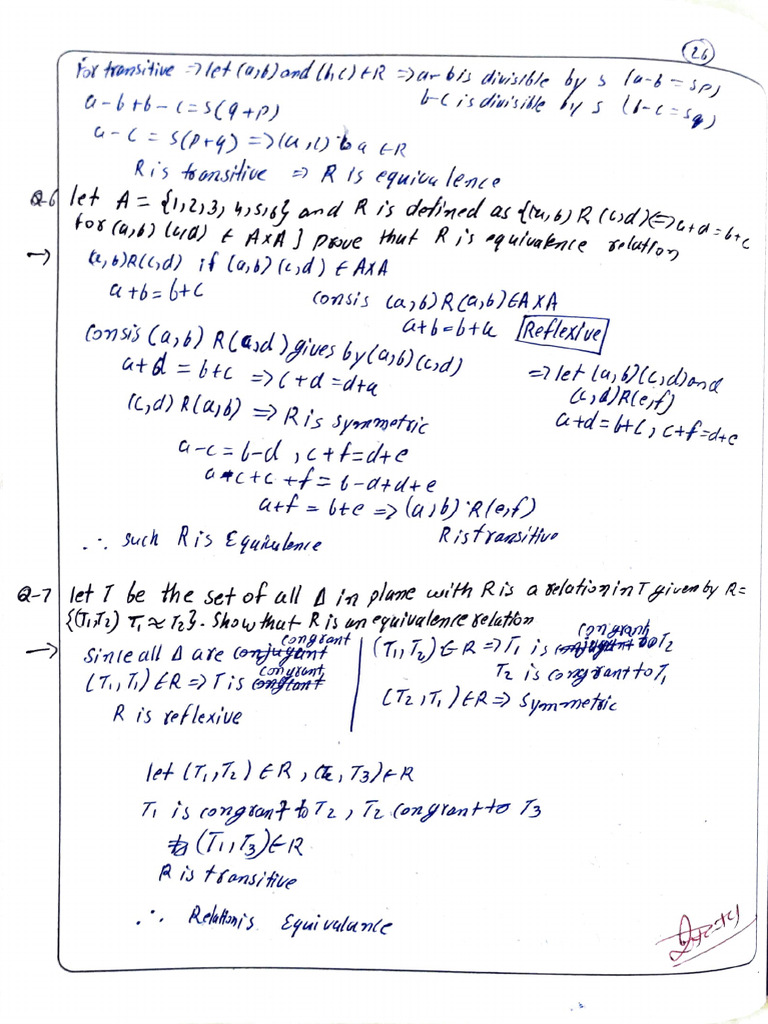 26
For transitive => let (a,b) and (b,c) ∈ R => a-b is divisible by 5 (a-b = 5p)
b-c is divisible by 5 (b-c = 5q)
a-b+b-c = 5(q+p)
a-c = 5(p+q) => (a,c) ∈ R
R is transitive => R is equivalence
Q-6 let A = {1,2,3,4,5,6} and R is defined as {(a,b) R (c,d) <=> a+d = b+c
For (a,b) (c,d) ∈ A×A } prove that R is equivalence relation
→ (a,b)R(c,d) if (a,b) (c,d) ∈ A×A
a+b = b+c
consis (a,b) R(a,b) ∈ A×A
a+b = b+a Reflexive
consis (a,b) R(c,d) gives by (a,b) (c,d)
a+d = b+c => c+d = d+a
(c,d) R(a,b) => R is symmetric
=> let (a,b)(c,d) and
(c,d)R(e,f)
a+d = b+c, c+f = d+e
a-c = b-d, c+f = d+e
a-c+c+f = b-d+d+e
a+f = b+e => (a,b) R(e,f)
∴ such R is Equivalence
R is transitive
Q-7 let T be the set of all Δ in plane with R is a relation in T given by R =
{(T1,T2) T1 ≈ T2}. Show that R is an equivalence relation
→ Since all Δ are congrant
(T1,T1) ∈ R => T is congrant
R is reflexive
(T1,T2) ∈ R => T1 is congrant to T2
T2 is congrant to T1
(T2,T1) ∈ R => Symmetric
let (T1,T2) ∈ R, (T2,T3) ∈ R
T1 is congrant to T2, T2 congrant to T3
(T1,T3) ∈ R
R is transitive
∴ Relation is Equivalance